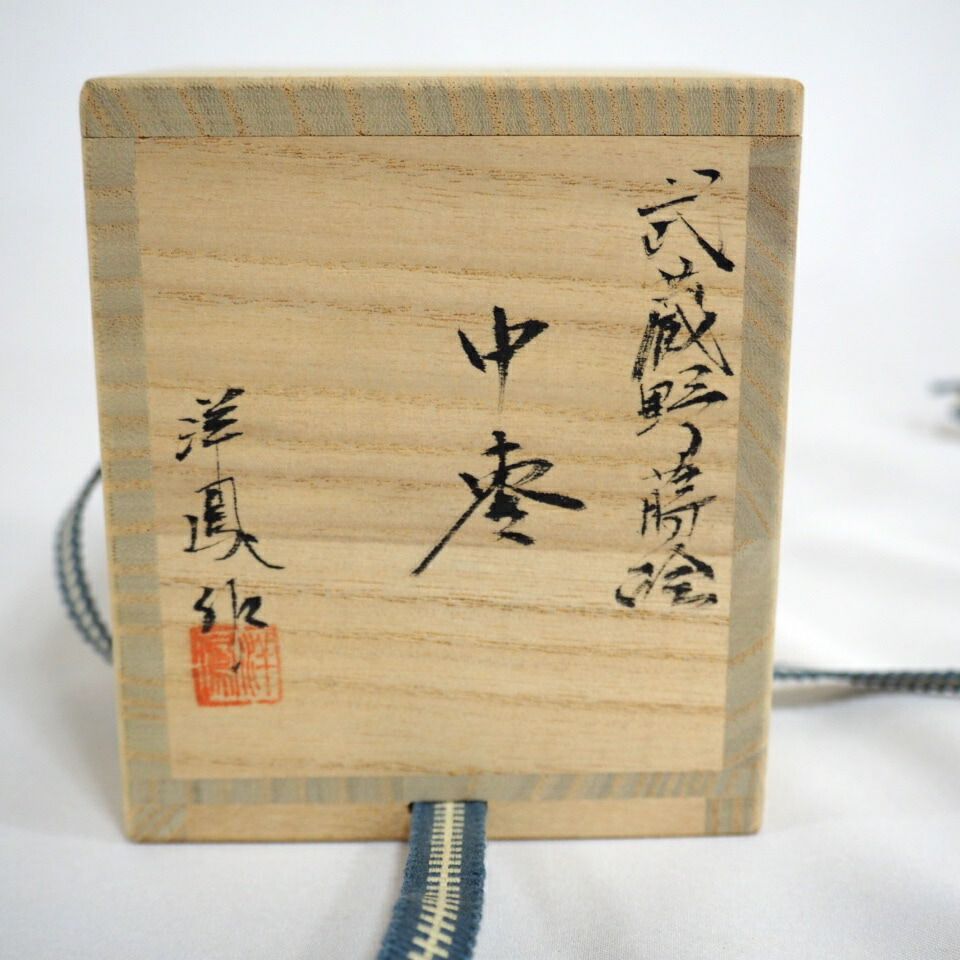 武蔵野蒔絵
中棗
洋鳳作